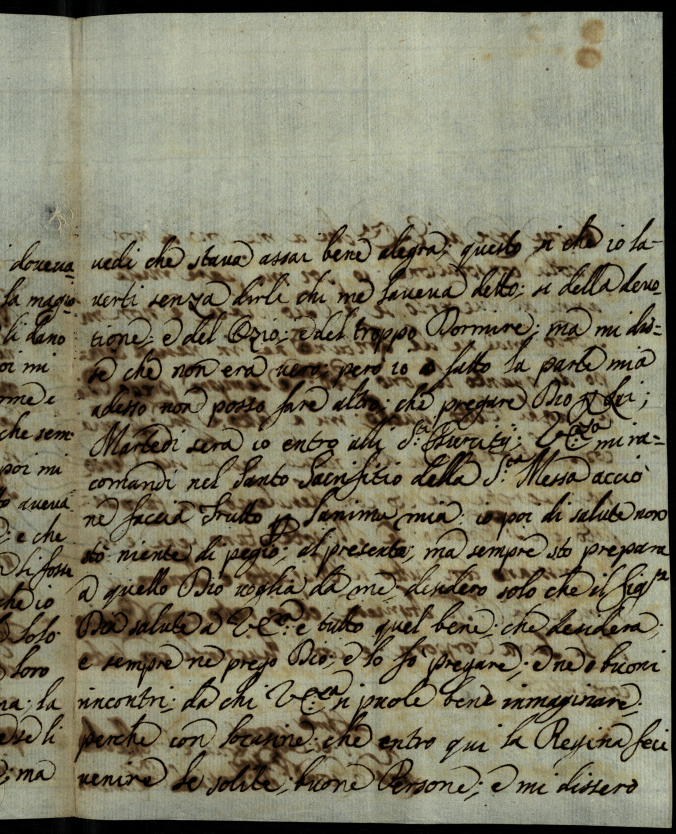 doveva
la magio
li dano
oi mi
rme e
che sem:
poi mi
to aveva
e che
li fosse
che io
solo
loro
na; la
ese li
ma
vedi che stava assai bene alegra; questo si che io la-
verti senza dirli chi me laveva detto; si della devo-
tione; e del Ozio; e del troppo Dormire; ma mi dis=
se che non era vero; pero io o fatto la parte mia
adesso non posso fare altro; che pregare Dio p Lei;
Martedi sera io entro alli S.ti Esercitij; V.E.za mi ra=
comandi nel Santo Sacrifitio della S.ta Messa acciò
ne faccia frutto p lanima mia: io poi di salute non
sto niente di pegio; al presente; ma sempre sto preparata
a quello Dio voglia da me desidero solo che il Sig.re
Dia salute a V.E.za e tutto quel bene; che desidera;
e sempre ne prego Dio; e lo fo pregare; e ne o buoni
incontri; da chi V.E.za si puole bene inmaginare;
perche con locasine; che entro qui la Regina feci
venire le solite; buone Persone; e mi dissero